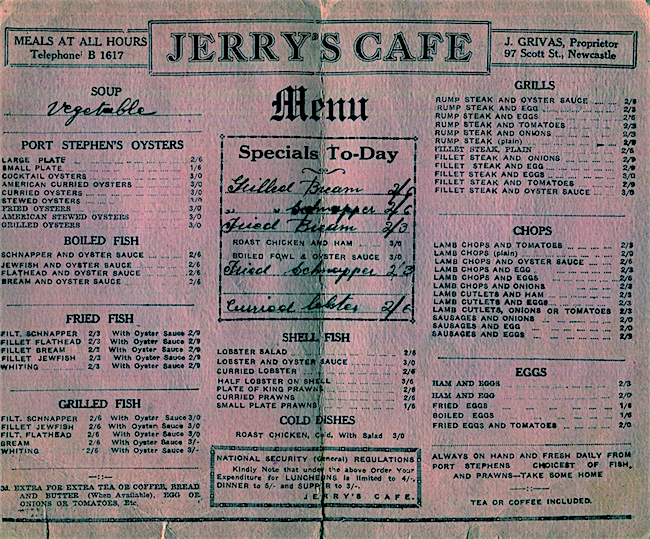 MEALS AT ALL HOURS
Telephone B 1617
JERRY'S CAFE
J. GRIVAS, Proprietor
97 Scott St., Newcastle
SOUP
Vegetable
PORT STEPHEN'S OYSTERS
LARGE PLATE 2/6
SMALL PLATE 1/6
COCKTAIL OYSTERS 3/0
AMERICAN CURRIED OYSTERS 3/0
CURRIED OYSTERS 3/0
STEWED OYSTERS 3/0
FRIED OYSTERS 3/0
AMERICAN STEWED OYSTERS 3/0
GRILLED OYSTERS 3/0
BOILED FISH
SCHNAPPER AND OYSTER SAUCE 2/6
JEWFISH AND OYSTER SAUCE 2/6
FLATHEAD AND OYSTER SAUCE 2/6
BREAM AND OYSTER SAUCE 2/6
FRIED FISH
FILT. SCHNAPPER 2/3 With Oyster Sauce 2/9
FILLET FLATHEAD 2/3 With Oyster Sauce 2/9
FILLET BREAM 2/3 With Oyster Sauce 2/9
FILLET JEWFISH 2/3 With Oyster Sauce 2/9
WHITING 2/3 With Oyster Sauce 2/9
GRILLED FISH
FILT. SCHNAPPER 2/6 With Oyster Sauce 3/0
FILLET JEWFISH 2/6 With Oyster Sauce 3/0
FILT. FLATHEAD 2/6 With Oyster Sauce 3/0
BREAM 2/6 With Oyster Sauce 3/-
WHITING 2/6 With Oyster Sauce 3/-
3d. EXTRA FOR EXTRA TEA OR COFFEE, BREAD
AND BUTTER (When Available), EGG OR
ONIONS OR TOMATOES, Etc.
Menu
Specials To-Day
Grilled Bream 2/6
" Schnapper 2/6
Fried Bream 2/3
ROAST CHICKEN AND HAM 3/0
BOILED FOWL & OYSTER SAUCE 3/0
Fried Schnapper 2/3
Curried lobster 2/6
SHELL FISH
LOBSTER SALAD 2/6
LOBSTER AND OYSTER SAUCE 3/0
CURRIED LOBSTER 2/6
HALF LOBSTER ON SHELL 3/6
PLATE OF KING PRAWNS 2/6
CURRIED PRAWNS 2/6
SMALL PLATE PRAWNS 1/6
COLD DISHES
ROAST CHICKEN, Cold, With Salad 3/0
NATIONAL SECURITY (General) REGULATIONS
Kindly Note that under the above Order Your
Expenditure for LUNCHEONS is limited to 4/-,
DINNER to 5/- and SUPPER to 3/-.
JERRY'S CAFE.
GRILLS
RUMP STEAK AND OYSTER SAUCE 2/6
RUMP STEAK AND EGG 2/3
RUMP STEAK AND EGGS 2/6
RUMP STEAK AND TOMATOES 2/3
RUMP STEAK AND ONIONS 2/3
RUMP STEAK (plain)
FILLET STEAK, PLAIN
FILLET STEAK AND ONIONS 2/9
FILLET STEAK AND EGG 2/9
FILLET STEAK AND EGGS 3/0
FILLET STEAK AND TOMATOES 2/9
FILLET STEAK AND OYSTER SAUCE 3/0
CHOPS
LAMB CHOPS AND TOMATOES 2/3
LAMB CHOPS (plain) 2/0
LAMB CHOPS AND OYSTER SAUCE 2/6
LAMB CHOPS AND EGG 2/3
LAMB CHOPS AND EGGS 2/6
LAMB CHOPS AND ONIONS 2/3
LAMB CUTLETS AND HAM 2/3
LAMB CUTLETS AND EGGS 2/3
LAMB CUTLETS, ONIONS OR TOMATOES 2/3
SAUSAGES AND ONIONS 2/0
SAUSAGES AND EGG 2/0
SAUSAGES AND EGGS
EGGS
HAM AND EGGS 2/3
HAM AND EGG 2/0
FRIED EGGS 1/6
BOILED EGGS 1/6
FRIED EGGS AND TOMATOES 2/0
ALWAYS ON HAND AND FRESH DAILY FROM
PORT STEPHENS CHOICEST OF FISH,
AND PRAWNS—TAKE SOME HOME
TEA OR COFFEE INCLUDED.